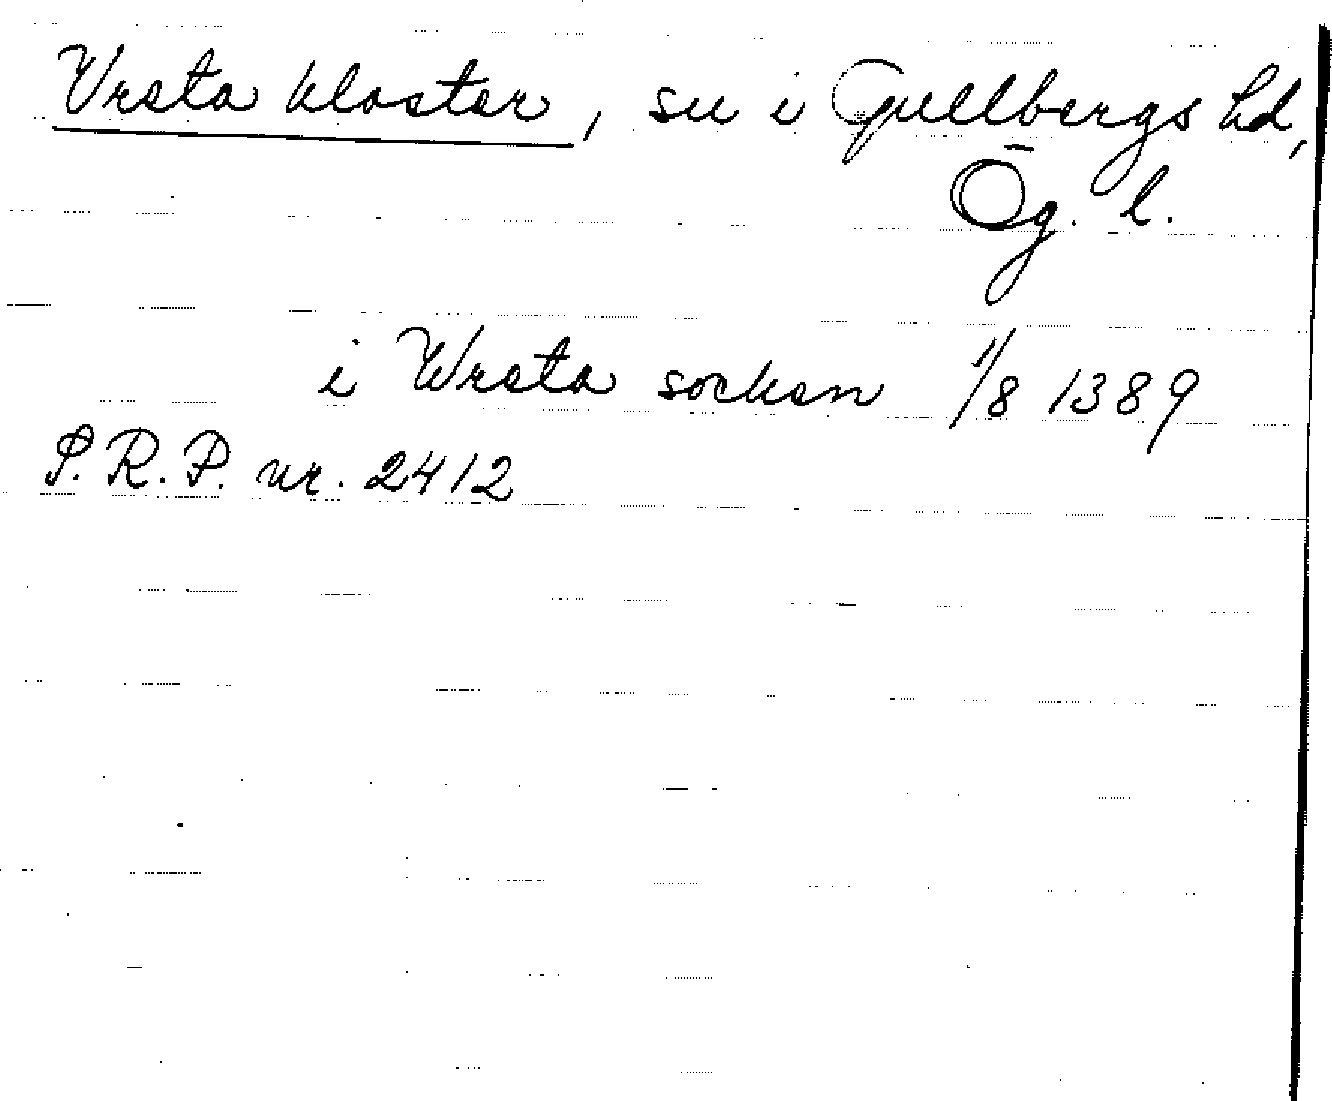 Vreta kloster, sn i Gullbergs hd,
Ög. l.
i Wreta socken 1/8 1389
S.R.P. nr. 2412